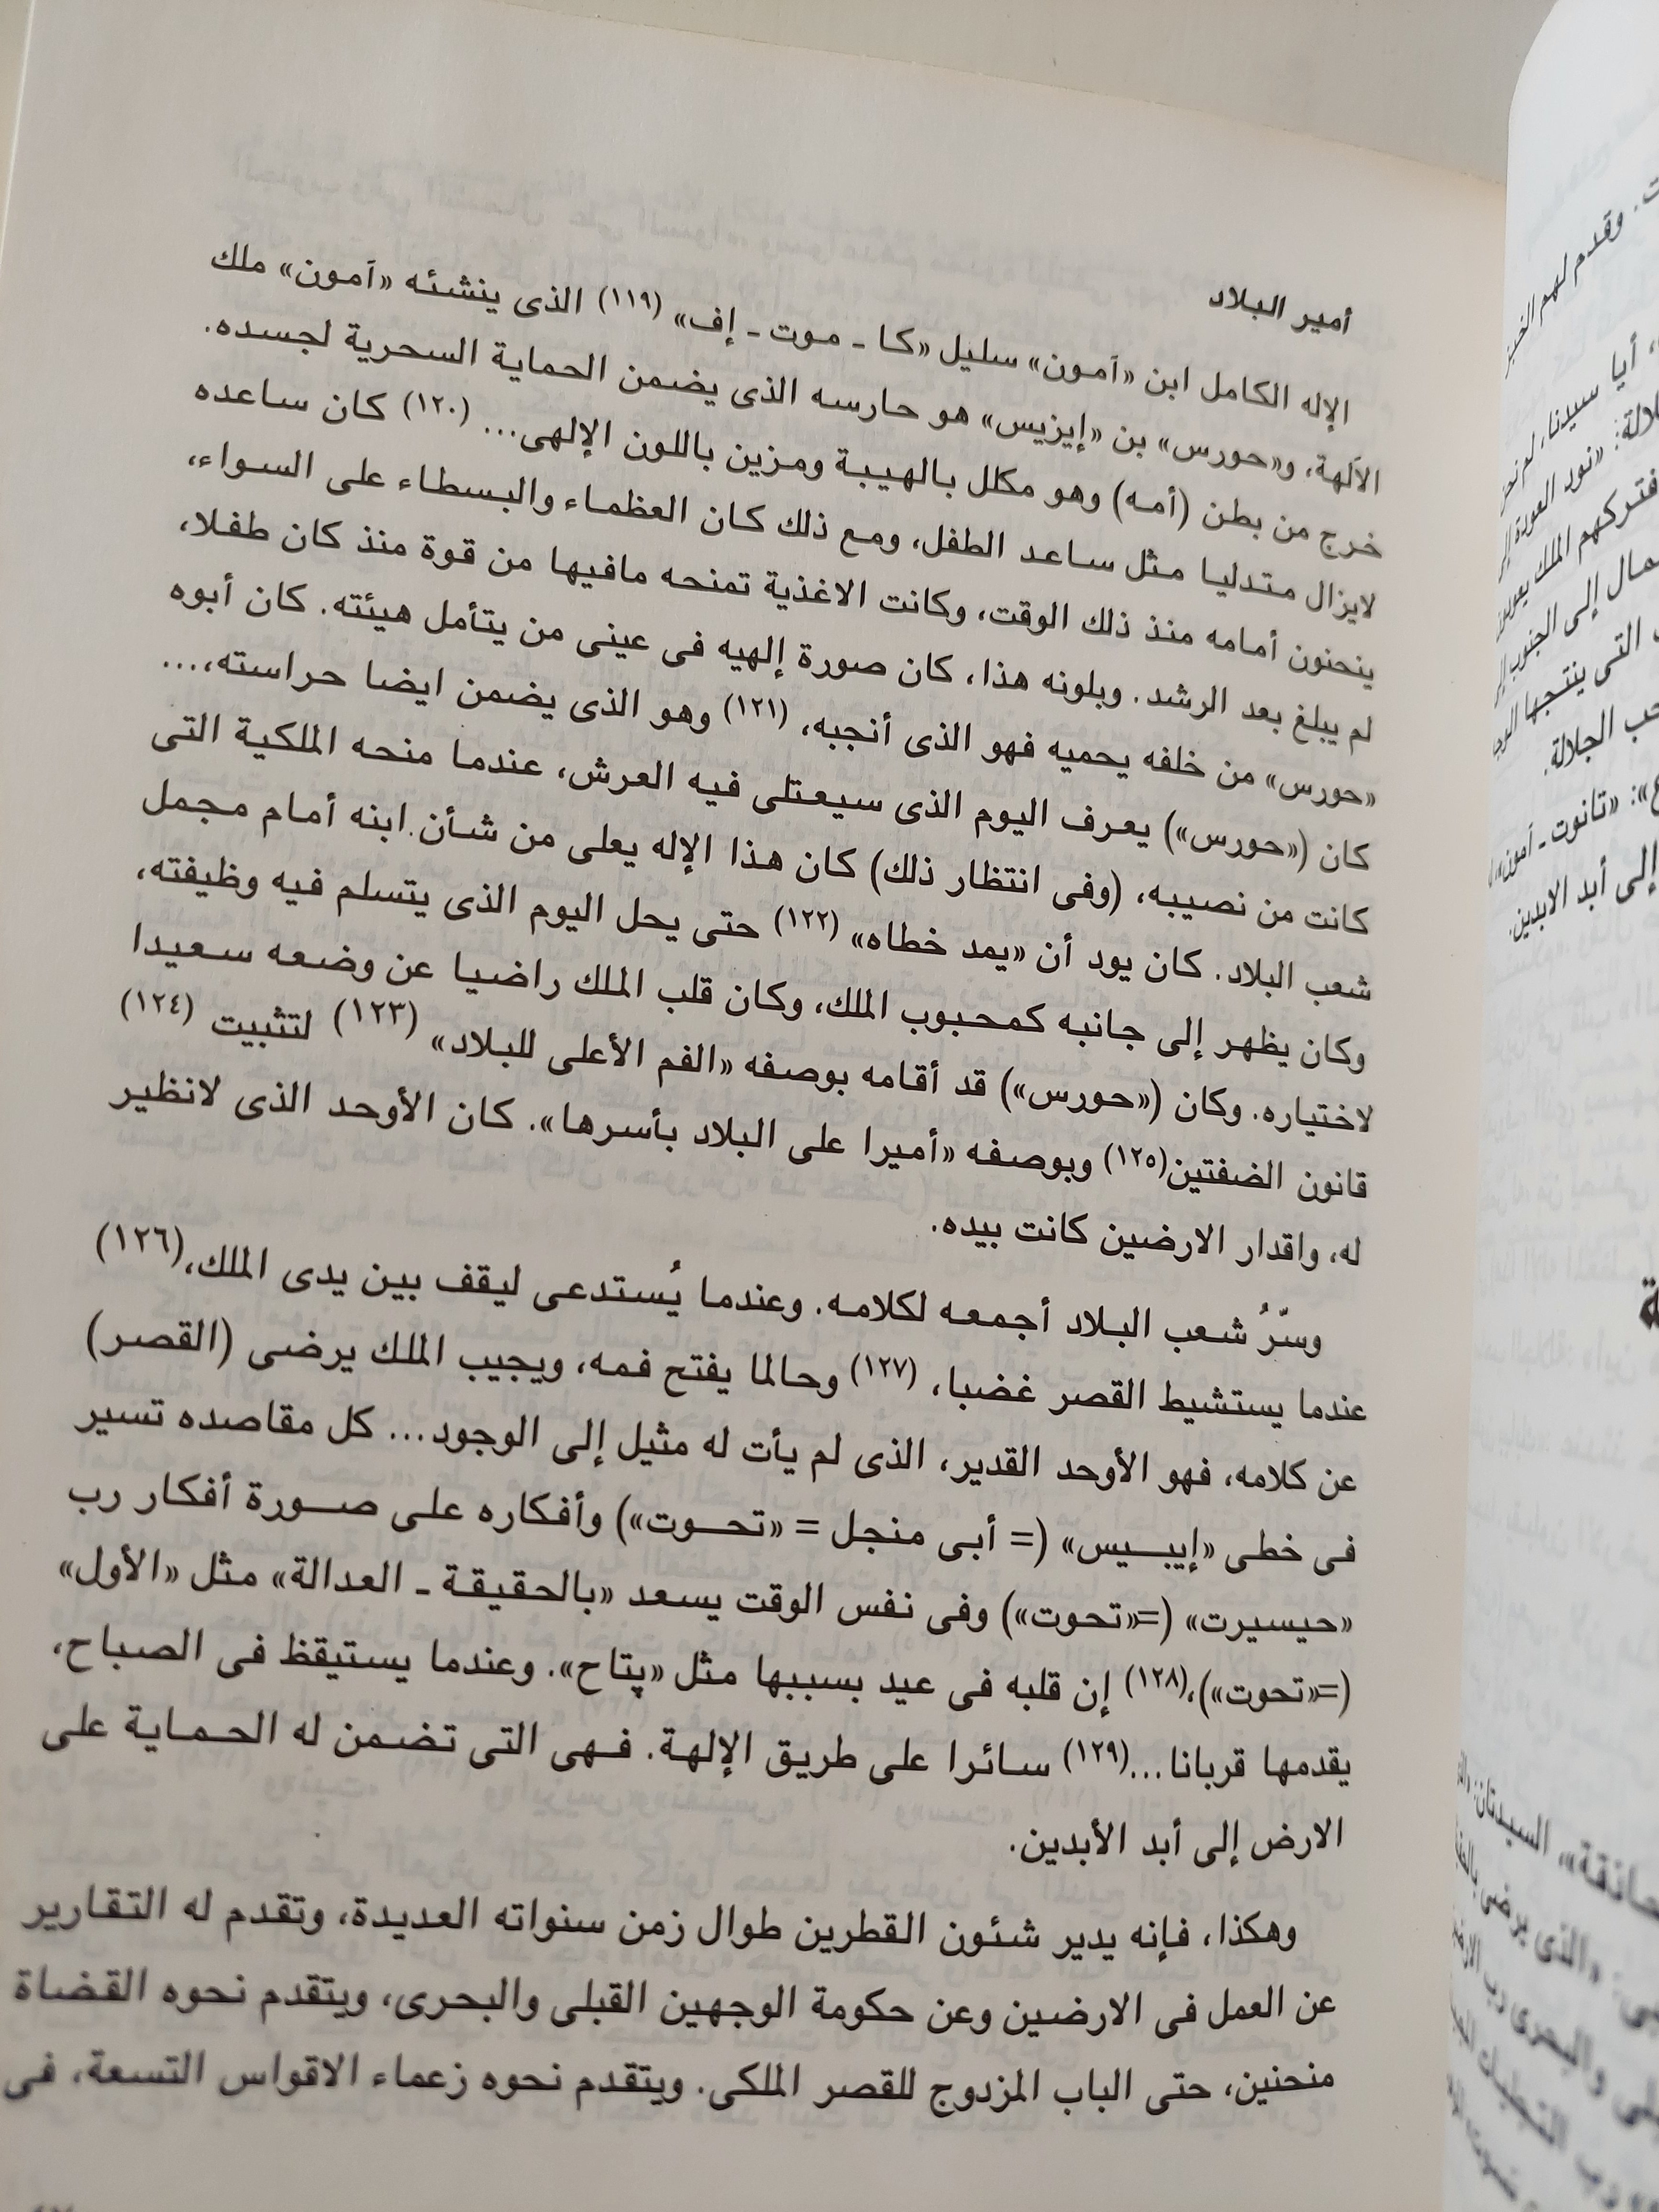 أمير البلاد
الإله الكامل ابن «آمون» سليل «كا ـ موت ـ إف» (١١٩) الذى ينشئه «آمون» ملك
الآلهة، و«حورس» بن «إيزيس» هو حارسه الذى يضمن الحماية السحرية لجسده.
خرج من بطن (أمه) وهو مكلل بالهيبة ومزين باللون الإلهى... (١٢٠) كان ساعده
لايزال متدليا مثل ساعد الطفل، ومع ذلك كان العظماء والبسطاء على السواء،
ينحنون أمامه منذ ذلك الوقت، وكانت الاغذية تمنحه مافيها من قوة منذ كان طفلا،
لم يبلغ بعد الرشد. وبلونه هذا، كان صورة إلهيه فى عينى من يتأمل هيئته. كان أبوه
«حورس» من خلفه يحميه فهو الذى أنجبه، (١٢١) وهو الذى يضمن ايضا حراسته،...
كان («حورس») يعرف اليوم الذى سيعتلى فيه العرش، عندما منحه الملكية التى
كانت من نصيبه، (وفى انتظار ذلك) كان هذا الإله يعلى من شأن ابنه أمام مجمل
شعب البلاد. كان يود أن «يمد خطاه» (١٢٢) حتى يحل اليوم الذى يتسلم فيه وظيفته،
وكان يظهر إلى جانبه كمحبوب الملك، وكان قلب الملك راضيا عن وضعه سعيدا
لاختياره. وكان («حورس») قد أقامه بوصفه «الفم الأعلى للبلاد» (١٢٣) لتثبيت (١٢٤)
قانون الضفتين(١٢٥) وبوصفه «أميرا على البلاد بأسرها». كان الأوحد الذى لانظير
له، واقدار الارضين كانت بيده.
وسّرُ شعب البلاد أجمعه لكلامه. وعندما يُستدعى ليقف بين يدى الملك،(١٢٦)
عندما يستشيط القصر غضبا، (١٢٧) وحالما يفتح فمه، ويجيب الملك يرضى (القصر)
عن كلامه، فهو الأوحد القدير، الذى لم يأت له مثيل إلى الوجود... كل مقاصده تسير
فى خطى «إيبيس» (= أبى منجل = «تحوت») وأفكاره على صورة أفكار رب
«حيسيرت» (=«تحوت») وفى نفس الوقت يسعد «بالحقيقة ـ العدالة» مثل «الأول»
(=«تحوت»)،(١٢٨) إن قلبه فى عيد بسببها مثل «پتاح». وعندما يستيقظ فى الصباح،
يقدمها قربانا...(١٢٩) سائرا على طريق الإلهة. فهى التى تضمن له الحماية على
الارض إلى أبد الأبدين.
وهكذا، فإنه يدير شئون القطرين طوال زمن سنواته العديدة، وتقدم له التقارير
عن العمل فى الارضين وعن حكومة الوجهين القبلى والبحرى، ويتقدم نحوه القضاة
منحنين، حتى الباب المزدوج للقصر الملكى. ويتقدم نحوه زعماء الاقواس التسعة، فى
وقدم لهم
أيا سيدنا، لم
«نور
فتركهم الملك
إلى الجنوب
التى ينتجها
الجلالة.
«تانوت ـ آمون»
إلى أبد الابدين.
السيدتان:
«الذى يرضى
والبحرى رب